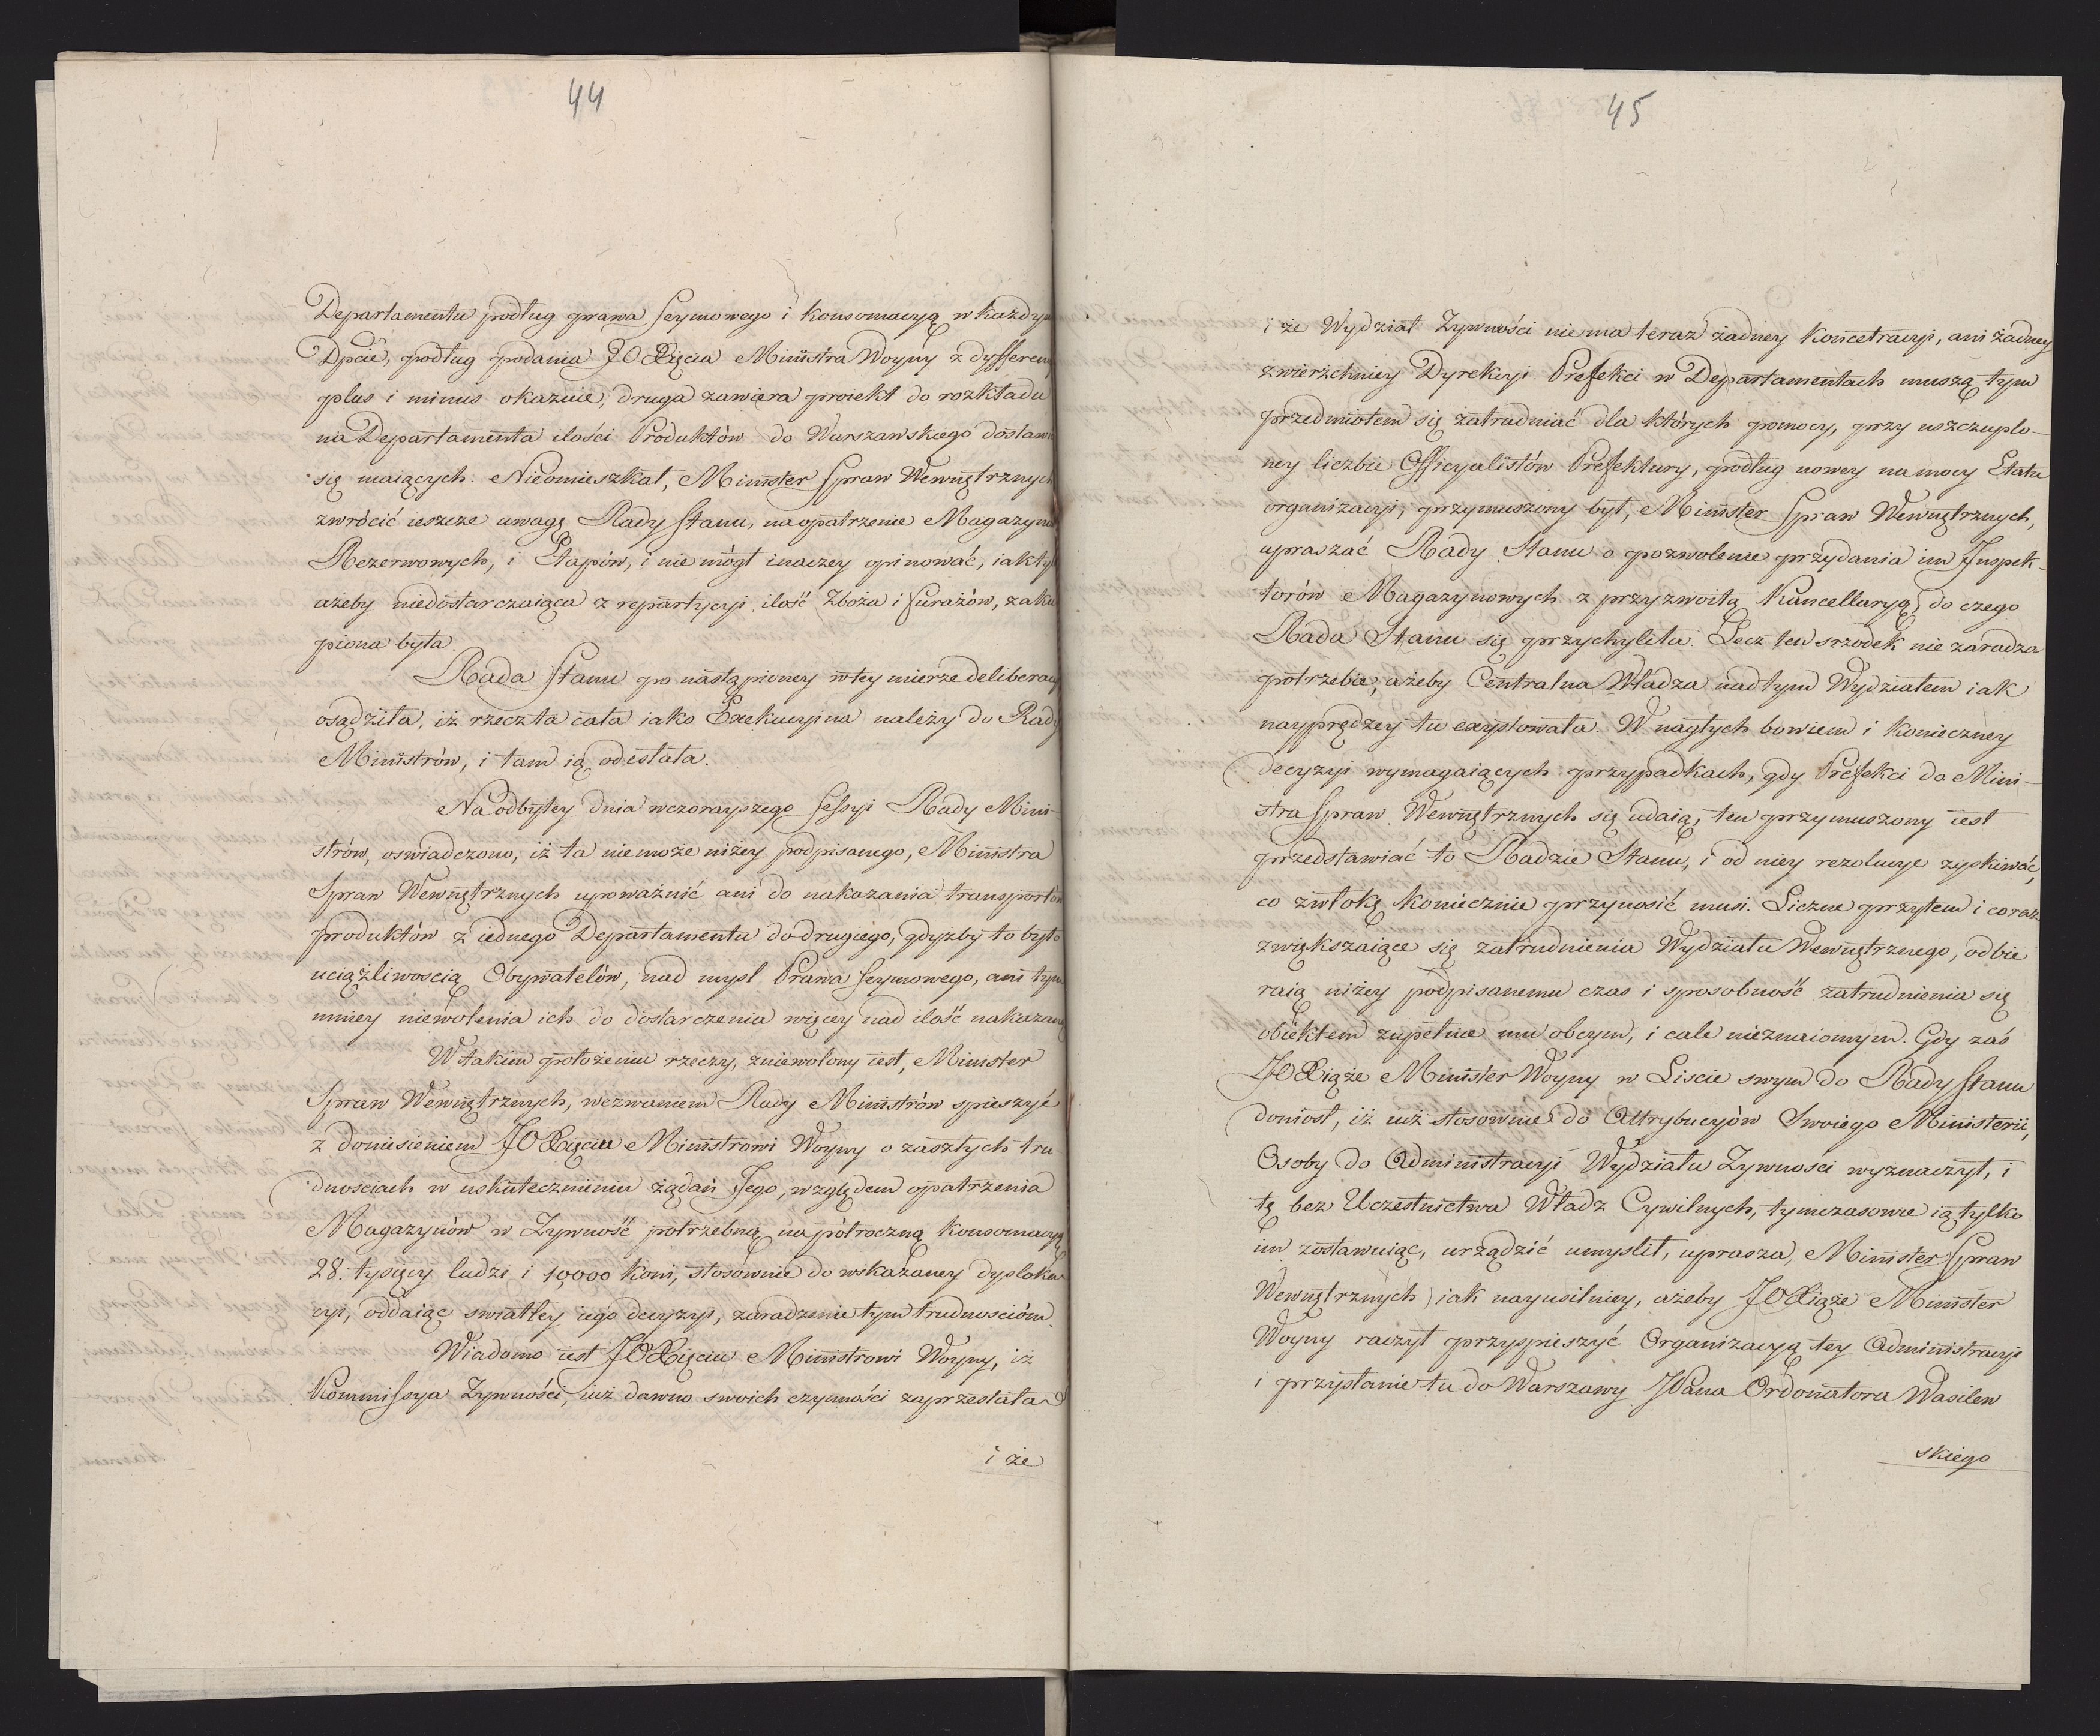 44
Departamentu podług prawa Seymowego i konsomacyą w każdym
Dpcie, podług podania JO Xięcia Ministra Woyny z dyfferen
plus i minus okazuie, druga zawiera proiekt do rozkładu
na Departamenta ilości Produktów do Warszawskiego dostawić
się maiących. Nieomieszkał, Minister Spraw Wewnętrznych
zwrócić ieszcze uwagę Rady Stanu, na opatrzenie Magazynów
Rezerwowych, i Etapów, i nie mógł inaczey opinować, iak tyl
ażeby niedostarczaiąca z repartycyi ilość Zboża i furażów, zaku
piona była.
Rada Stanu po nastąpioney w tey mierze deliberacyi
osądziła, iż rzecz ta cała iako Exekucyina należy do Rady
Ministrów, i tam ią odesłała.
Na odbytey dnia wczorayszego Sessyi Rady Mini-
strów, oswiadczono, iż ta nie może niżey podpisanego, Ministra
Spraw Wewnętrznych upoważnić ani do nakazania transportów
produktów z iednego Departamentu do drugiego, gdyżby to było
uciążliwoscią Obywatelów, nad mysl Prawa Seymowego, ani tym
mniey niewolenia ich do dostarczenia więcey nad ilość nakazaną
W takim położeniu rzeczy, zniewolony iest, Minister
Spraw Wewnętrznych, wezwaniem Rady Ministrów spieszyć
z doniesieniem JO Xięciu Ministrowi Woyny o zaszłych tru
dnosciach w uskutecznieniu żądań Jego, względem opatrzenia
Magazynów w Zywność potrzebną na półroczną konsomacyą
28. tysięcy ludzi i 10,000 koni, stosownie do wskazaney dyploka
cyi, oddaiąc swiatłey iego decyzyi, zaradzenie tym trudnosciom.
Wiadomo iest JO Xięciu Ministrowi Woyny, iż
Kommissya Zywności, iuż dawno swoich czynności zaprzestała
i że
45
i że Wydział Zywności nie ma teraz żadney koncetracyi, ani żadney
zwierzchniey Dyrekcyi. Prefekci w Departamentach muszą tym
przedmiotem się zatrudniać dla których pomocy, przy uszczuplo-
ney liczbie Officyalistów Prefektury, podług nowey na mocy Etatu
organizacyi, przymuszony był, Minister Spraw Wewnętrznych,
upraszać Rady Stanu o pozwolenie przydania im Inspek-
torów Magazynowych z przyzwoitą Kancellaryą, do czego
Rada Stanu się przychyliła. Lecz ten srzodek nie zaradza
potrzebie, ażeby Centralna Władza nad tym Wydziałem iak
nayprędzey tu exystowała. W nagłych bowiem i konieczney
decyzyi wymagaiących przypadkach, gdy Prefekci do Mini-
stra Spraw Wewnętrznych się udaią, ten przymuszony iest
przedstawiać to Radzie Stanu, i od niey rezolucye zyskiwać,
co zwłokę koniecznie przynosić musi. Liczne przytem i coraz
zwiększaiące się zatrudnienia Wydziału Wewnętrznego, odbie
raią niżey podpisanemu czas i sposobność zatrudnienia się
obiektem zupełnie mu obcym, i cale nieznaiomym. Gdy zaś
JO Xiąże Minister Woyny w Liscie swym do Rady Stanu
doniosł, iż iuż stosownie do Attrybucyów Swoiego Ministerii,
Osoby do Administracyi Wydziału Zywnosci wyznaczył, i
tę bez Uczestnictwa Władz Cywilnych, tymczasowie ią tylko
im zostawuiąc, urządzić umyslił, uprasza, Minister Spraw
Wewnętrznych, iak nayusilniey, ażeby JO Xiąże Minister
Woyny raczył przyspieszyć Organizacyą tey Administracyi
i przysłanie tu do Warszawy JPana Ordonatora Wasilew
skiego